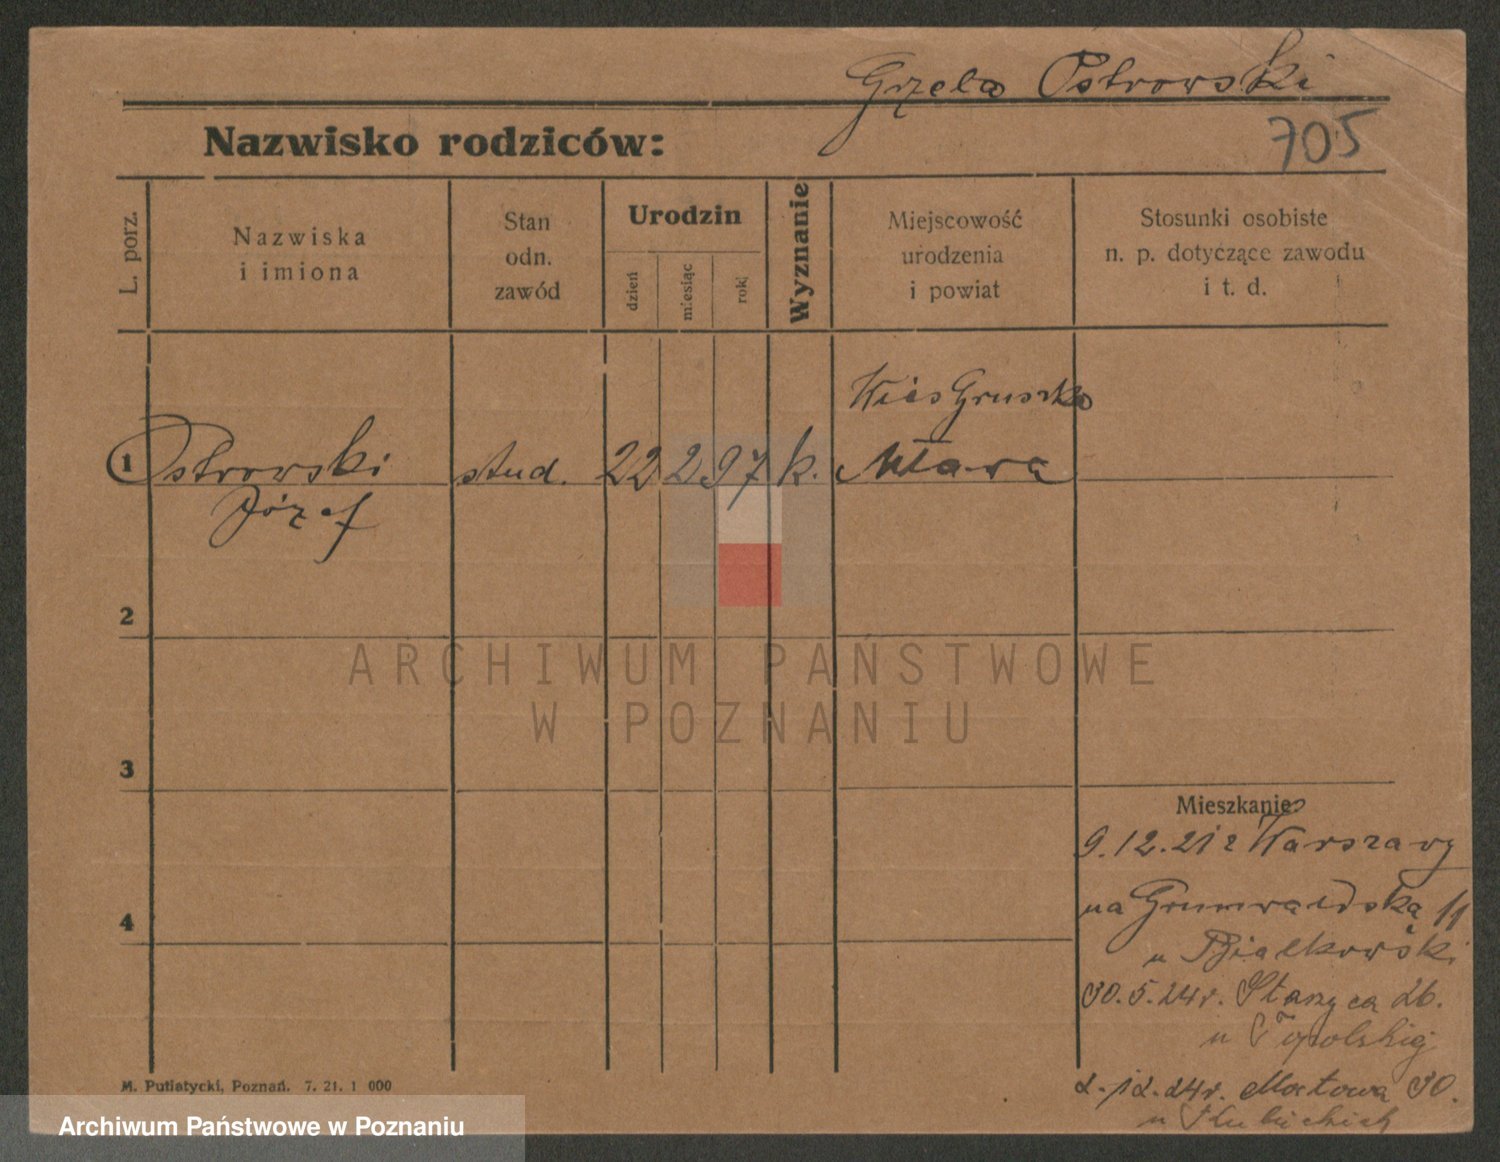 Grzela Ostrowski
Nazwisko rodziców:
705
L. porz.
Nazwiska
i imiona
Stan
odn.
zawód
Urodzin
dzień
miesiąc
rok
Wyznanie
Miejscowość
urodzenia
i powiat
Stosunki osobiste
n. p. dotyczące zawodu
i t. d.
Wieś Gruszka
1 Ostrowski stud. 22 2 97 k. Mława
Józef
2
ARCHIWUM PAŃSTWOWE
W POZNANIU
3
4
Mieszkanie
9.12.21 z Warszawy
na Grunwaldską 11
u Białkowski
30.5.24r. Staszyca 26.
u Topolskiej
2.12.24r. Mostowa 30.
u
M. Putiatycki, Poznań. 7. 21. 1 000
Archiwum Państwowe w Poznaniu